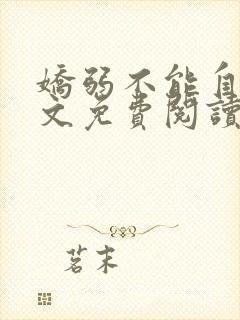 嬌弱不能自
文免費閱讀
茗末